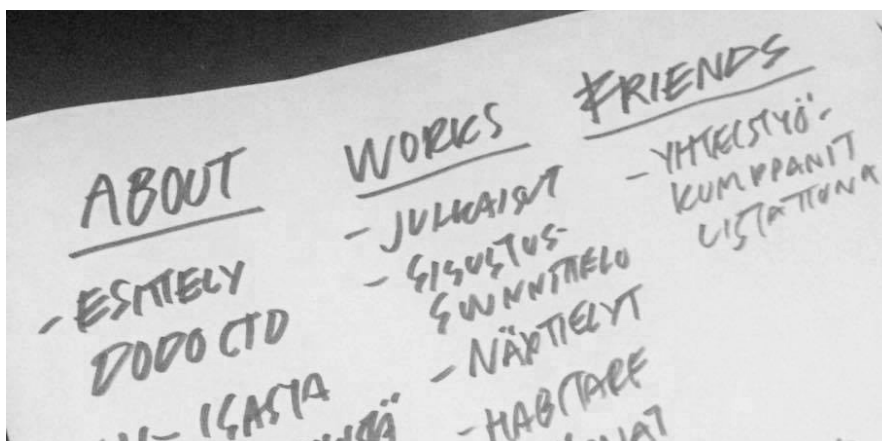 ABOUT
- ESITTELY
DODO LTD
- ISASTA
WORKS
- JULKAISUT
- SISUSTUS-
SUUNNITTELU
- NÄYTTELYT
- HABITARE
FRIENDS
- YHTEISTYÖ-
KUMPPANIT
LISTATTUNA